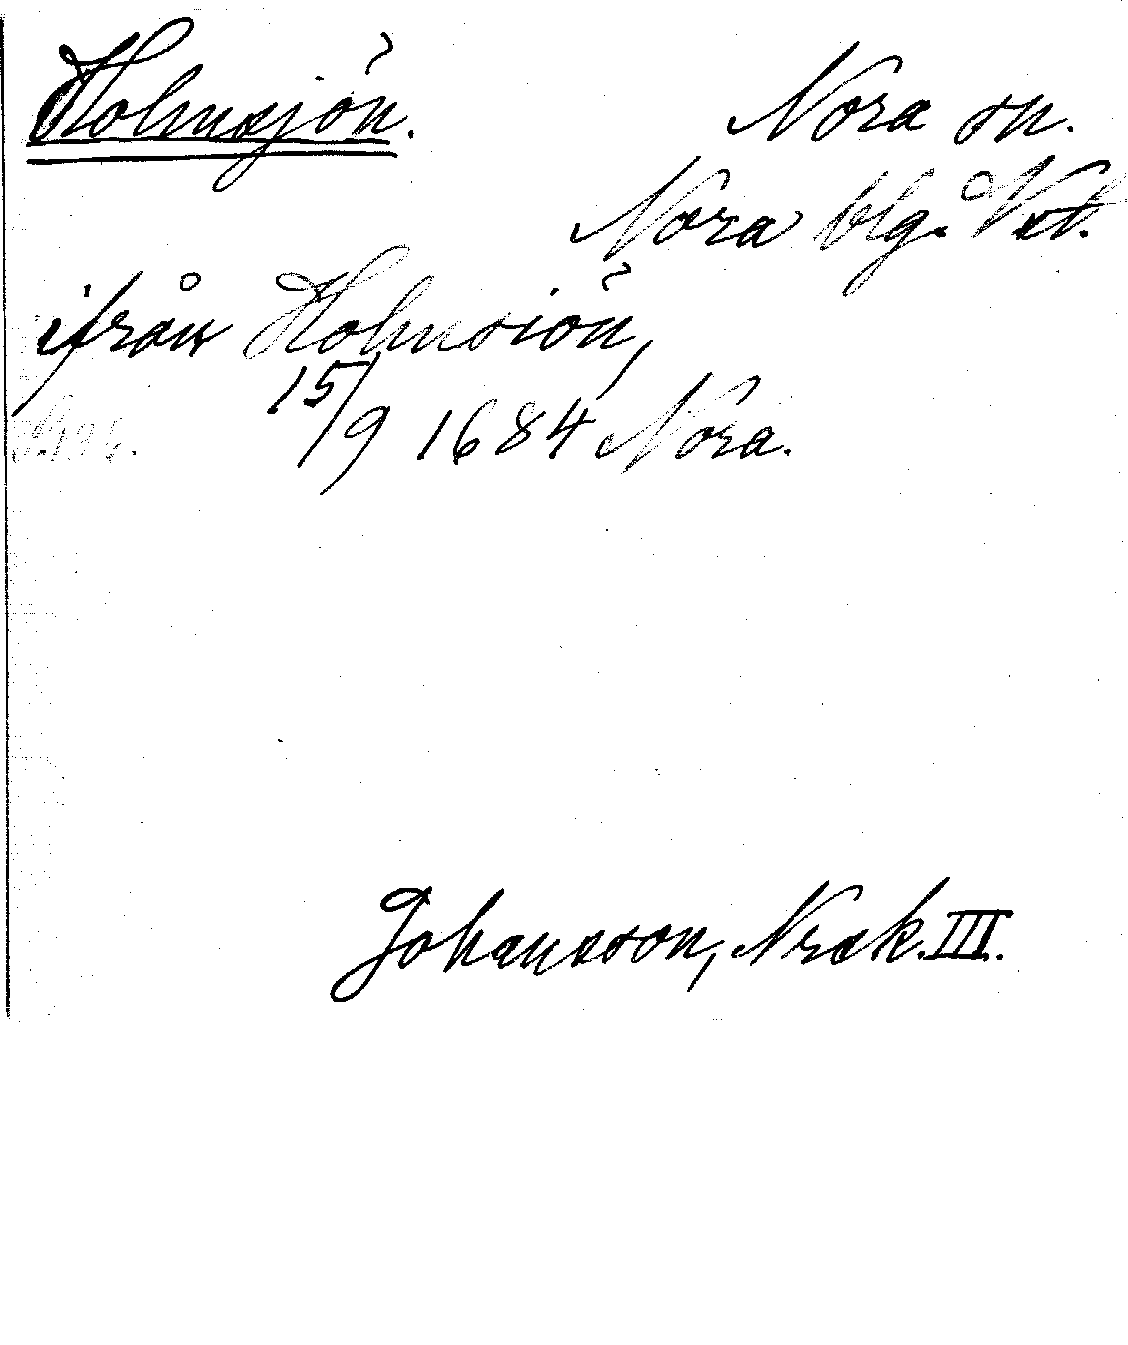 Holmsjön.
Nora sn.
Nora blg. Vstl.
ifrån Holmsiön,
15/9 1684 Nora.
Johansson, Nrsk. III.